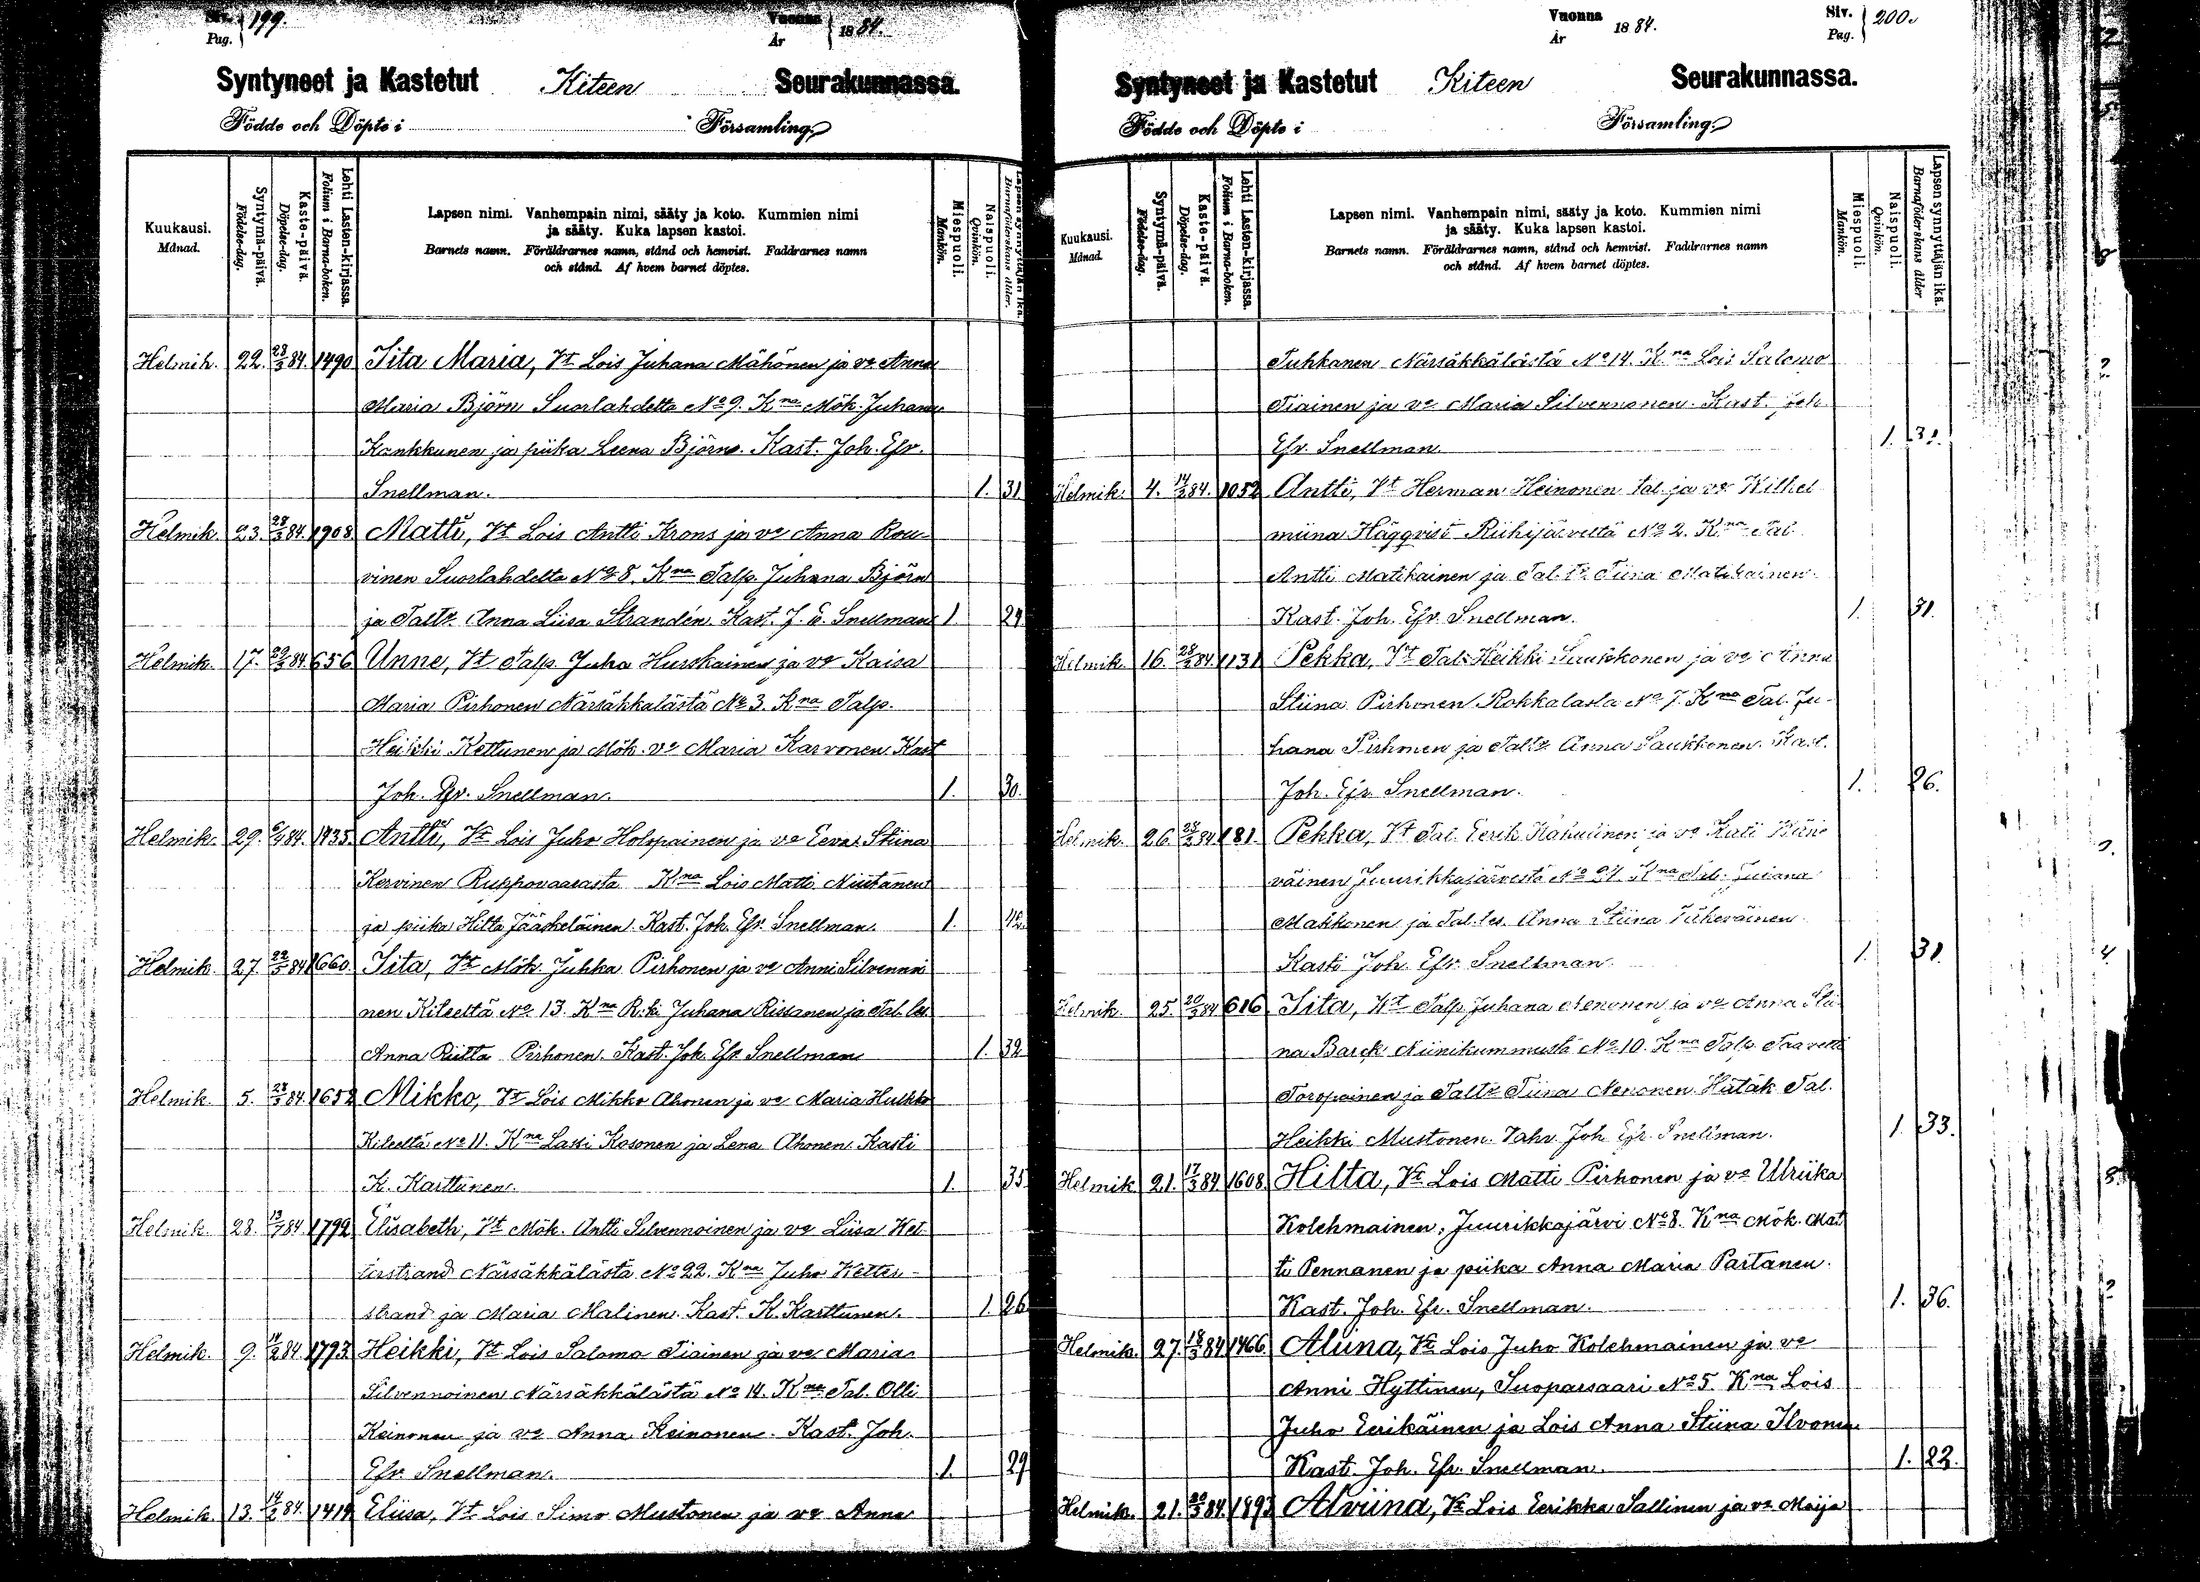 Siv. Pag. 199. Vuonna År 1884.
Syntyneet ja Kastetut Kiteen Seurakunnassa.
Födde och Döpte i Församling
Kuukausi. Månad. Syntymä-päivä. Födelse-dag. Kaste-päivä. Döpelse-dag. Lehti Lasten-kirjassa. Folium i Barna-boken.
Lapsen nimi. Vanhempain nimi, sääty ja koto. Kummien nimi
ja sääty. Kuka lapsen kastoi.
Barnets namn. Föräldrarnes namn, stånd och hemvist. Faddrarnes namn
och stånd. Af hvem barnet döptes.
Miespuoli. Mankön. Naispuoli. Qvinkön. Lapsen synnyttäjän ikä. Barnaföderskans ålder.
Helmik. 22. 28/3 84. 1490 Iita Maria, Vt Lois Juhana Mähönen ja vo Anna
Maria Björn Suorlahdelta No 9. Kna Mök. Juhana
Kankkunen ja piika Leena Björn. Kast. Joh. Efr.
Snellman. 1. 31
Helmik. 23. 28/3 84. 1908 Matti, Vt Lois Antti Krons ja vo Anna Rou-
vinen Suorlahdelta No 8. Kna Talp. Juhana Björn
ja Taltr. Anna Liisa Strandén. Kast. J. E. Snellman 1. 29
Helmik. 17. 84 656 Unne, Vt Talp. Juha Hurskainen ja vo Kaisa
Maria Pirhonen Närsäkkälästä No 3. Kna Talp.
Heikki Kettunen ja Mök. vo Maria Karvonen. Kast
Joh. Efr. Snellman. 1. 30.
Helmik. 29. 6/4 84. 1435 Antti, Vt Lois Juho Holopainen ja vo Eeva Stiina
Kervinen Ruppovaarasta Kna Lois Matti Niiutanen
ja piika Hilta Jääskeläinen. Kast. Joh. Efr. Snellman. 1. 42
Helmik. 27. 22/3 84 1660. Iita, Vt Mök. Jukka Pirhonen ja vo Anni Silvennoi
nen Kiteeltä No 13. Kna R.ki Juhana Rissanen ja Tal. les.
Anna Riitta Pirhonen. Kast. Joh. Efr. Snellman 1. 32
Helmik. 5. 84. 1652 Mikko, Vt Lois Mikko Ahonen ja vo Maria Hulkko
Kiteeltä No 11. Kna Lassi Kosonen ja Lena Ahonen. Kasti
K. Karttunen. 1. 35
Helmik. 28. 84 1792 Elisabeth, Vt Mök. Antti Silvennoinen ja vo Liisa Ket-
terstrand Närsäkkälästä No 22. Kna Juho Ketter-
strand ja Maria Malinen. Kast. K. Karttunen. 1 26
Helmik. 9. 14/2 84. 1793 Heikki, Vt Lois Salomo Tiainen ja vo Maria
Silvennoinen Närsäkkälästä No 14. Kna Tal. Olli
Keinonen ja vo Anna Keinonen. Kast. Joh.
Efr. Snellman. 1. 29
Helmik. 13. 14/2 84. 1414 Eliisa, Vt Lois Simo Mustonen ja vo Anna
Vuonna År 1884. Siv. Pag. 200.
Syntyneet ja Kastetut Kiteen Seurakunnassa.
Födde och Döpte i Församling
Kuukausi. Månad. Syntymä-päivä. Födelse-dag. Kaste-päivä. Döpelse-dag. Lehti Lasten-kirjassa. Folium i Barna-boken.
Lapsen nimi. Vanhempain nimi, sääty ja koto. Kummien nimi
ja sääty. Kuka lapsen kastoi.
Barnets namn. Föräldrarnes namn, stånd och hemvist. Faddrarnes namn
och stånd. Af hvem barnet döptes.
Miespuoli. Mankön. Naispuoli. Qvinkön. Lapsen synnyttäjän ikä. Barnaföderskans ålder
Tuhkanen Närsäkkälästä No 14. Kna Lois Salomo
Tiainen ja vo Maria Silvennonen. Kast. Joh.
Efr. Snellman. 1.
Helmik. 4. 14/2 84. 1052 Antti, Vt Herman Heinonen tal. ja vo Wilhel
miina Häggqvist Riihijärveltä No 2. Kna Tal
Antti Matikainen ja Tal. tr Tiina Matikainen.
Kast. Joh. Efr. Snellman. 1. 31.
Helmik. 16. 84 1131 Pekka, Vt Tal. Heikki Saukkonen ja vo Anna
Stiina Pirhonen Rokkalasta No 7. Kna Tal. Ju-
hana Pirhonen ja Taltr. Anna Saukkonen. Kast.
Joh. Efr. Snellman. 1. 26.
Helmik. 26. 84 181. Pekka, Vt Tal. Eerik ja vo Kati
väinen Juurikkajärvestä No 27. Kna Tal. Juhana
Makkonen ja Tal. les. Anna Stiina
Kasti Joh. Efr. Snellman. 1. 31.
Helmik. 25. 20/3 84 616 Iita, Vt Talp. Juhana Nenonen ja vo Anna Stii
na Barck Niinikummusta No 10. Kna Talp. Taavetti
Toropainen ja Taltr Tiina Nenonen. Hätäk. Tal.
Heikki Mustonen. Vahv. Joh. Efr. Snellman. 1. 33.
Helmik. 21. 17/3 84 1608. Hilta, Vt Lois Matti Pirhonen ja vo Ulriika
Kolehmainen, Juurikkajärvi No 8. Kna Mök. Mat
ti Pennanen ja piika Anna Maria Partanen.
Kast. Joh. Efr. Snellman. 1. 36.
Helmik. 27. 18/3 84 1466. Aliina, Vt Lois Juho Kolehmainen ja vo
Anni Hyttinen, Suoparsaari No 5. Kna Lois
Juho Eerikäinen ja Lois Anna Stiina Ilvonen
Kast. Joh. Efr. Snellman. 1. 22.
Helmik. 21. 84. 1893 Alviina, Vt Lois Eerikka Sallinen ja vo Maija